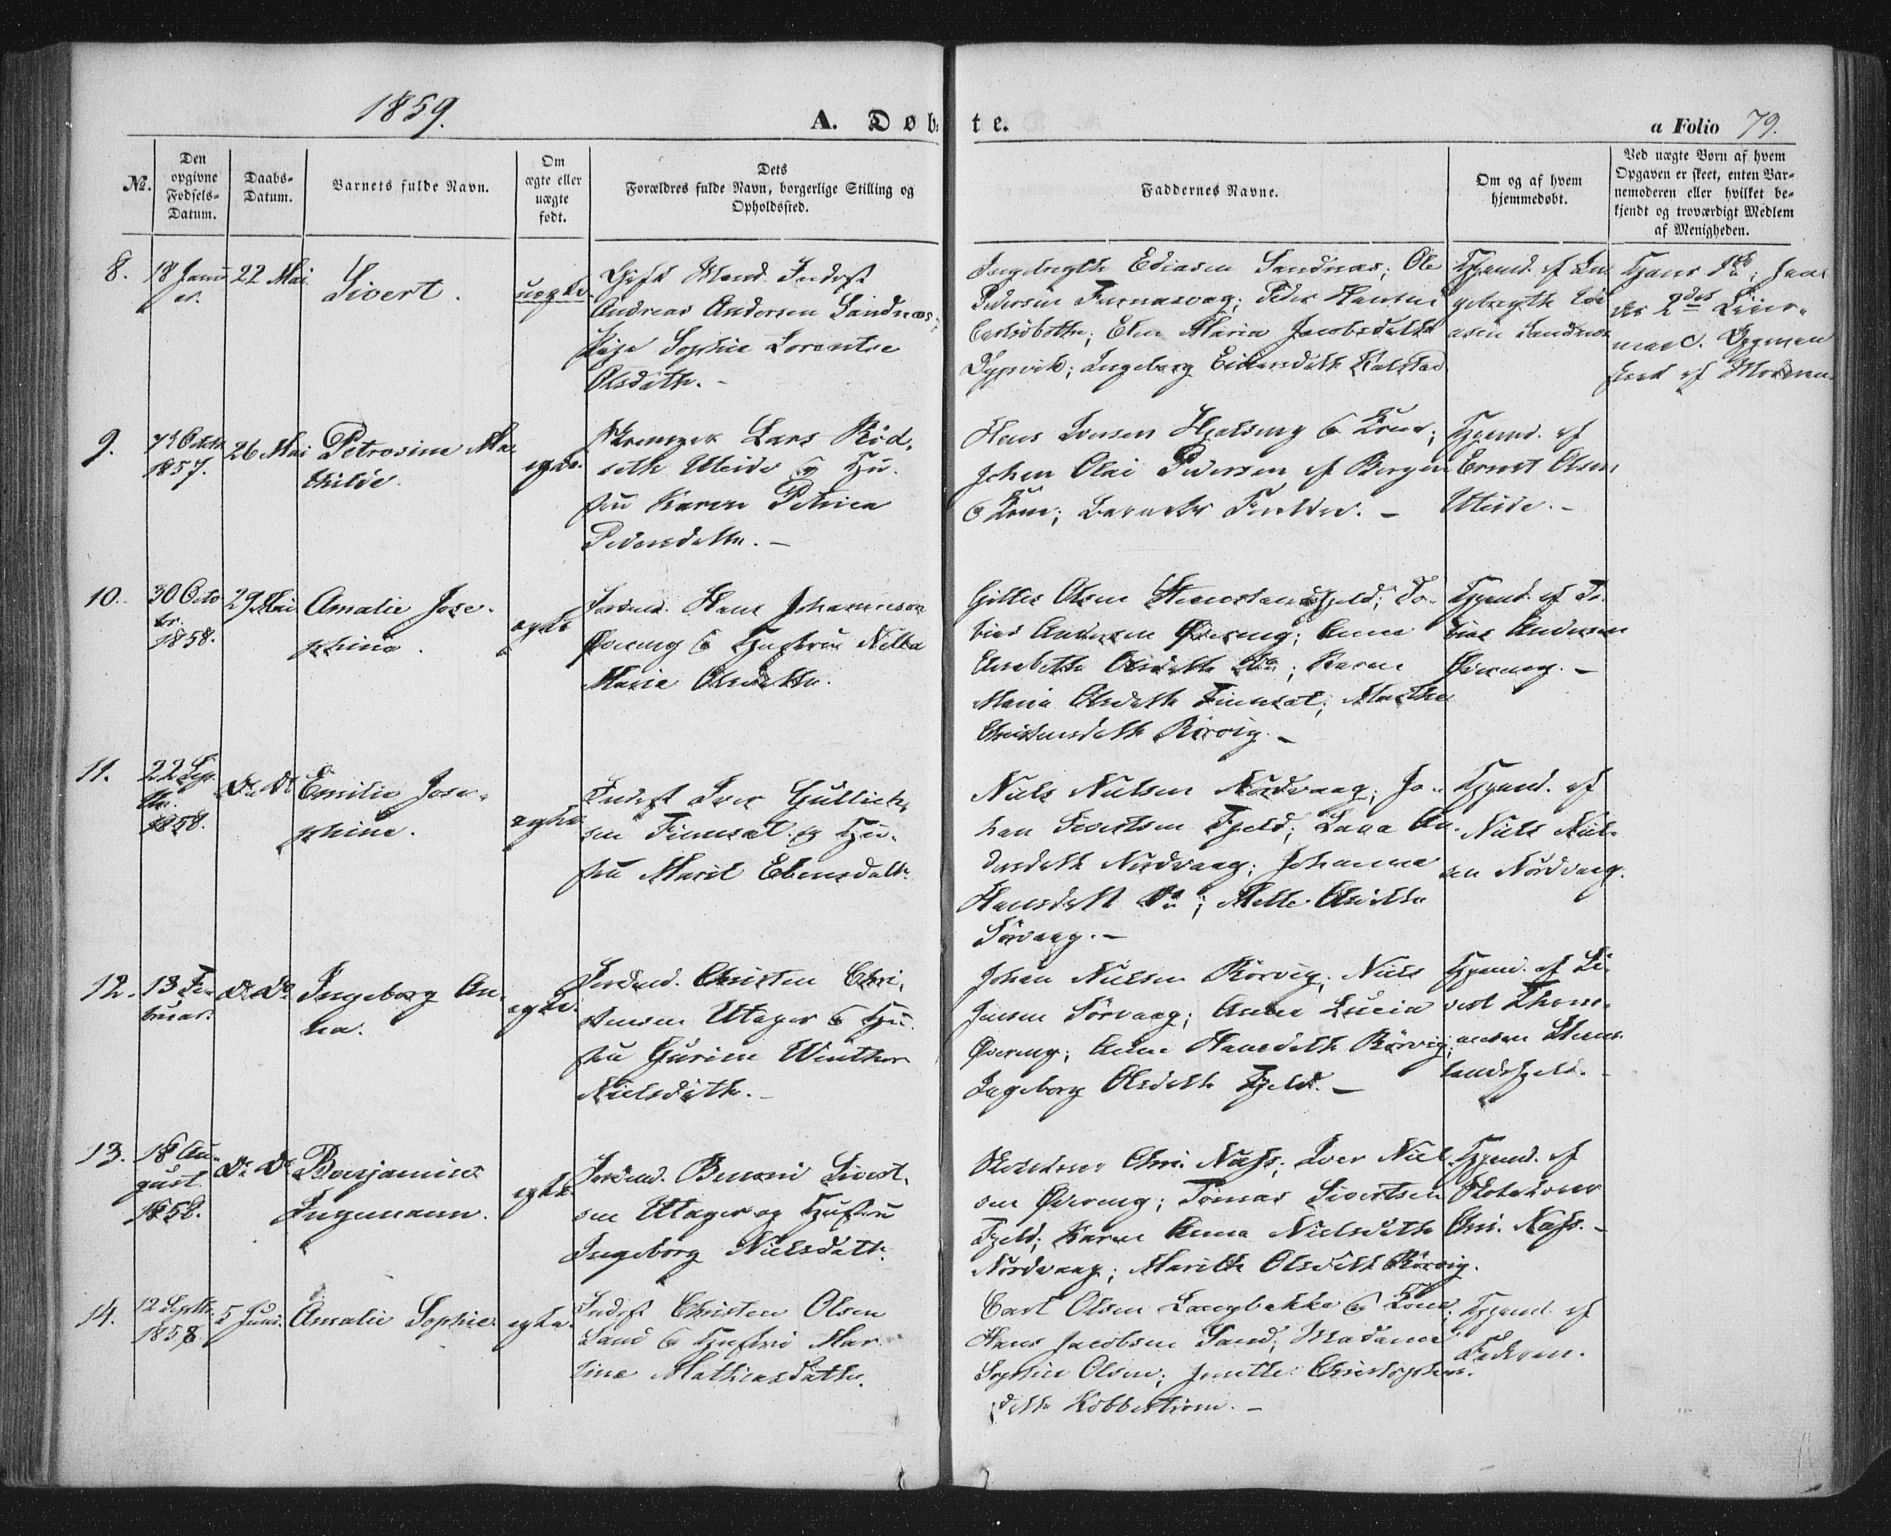 1859.
A. Døbte.
a Folio 79.
No.
Den opgivne Fødsels-Datum.
Daabs-Datum.
Barnets fulde Navn.
Om ægte eller uægte født.
Dets Forældres fulde Navn, borgerlige Stilling og Opholdssted.
Faddernes Navne.
Om og af hvem hjemmedøbt.
Ved uægte Børn af hvem Opgaven er skeet, enten Barnemoderen eller hvilket bekjendt og troværdigt Medlem af Menigheden.
8.
18 Janu
ar.
22 Mai
Sivert.
uægte
Gift Mand Inderst
Andreas Andersen Sandnæs;
Pige Sophie Lorentse
Olsdatt. -
Ingebregth Ediasen Sandnæs; Ole
Pedersen Finnesvag; Peder Hansen
Elen Maria Jacobsdatt
Dypvik; Ingeborg Einersdatt Kalstad
Hjemd. af In
gebregth Edi
asen Sandnæs
hans 1ste; hen
des 2det Leier-
maal. Opgiven
af Moderen.
9.
7de Octob
1857.
26 Mai
Petrosine Ma
thilde.
egte.
Lars Rød
seth Uteide og Hu
stru Karen Petrica
Pedersdattr. -
Hans Iversen & Kone;
Johan Olai Pedersen af Bergen
& Kone; Barnets Forældre. -
Hjemd. af
Ernst Olsen
Uteide. -
10.
30 Octo
br.
1858.
29 Mai
Amalie Jose-
phine.
egte
Jordmd. Hans Johannesen
Øvereng & Hustru Nella
Maria Olsdattr.
Gitles Olsen Steenslandsfjeld; To-
bias Andersen Øvereng; Anne
Elisabeth Olsdatt Do; Karen
Maria Olsdatt Finnset; Marthe
Christensdatt Rørvig. -
Hjemd. af To-
bias Andersen
Øvereng. -
11.
22 Sep
tbr.
1858.
Do Do
Emilie Jose-
phine.
egte
Inderst Iver Gullick
sen Finnset og Hu-
stru Marit Ebensdatt.
Niels Nielsen Nordvaag; Jo-
han Sivertsen Fjeld; Lava An-
dersdatt Nordvaag; Johanna
Hansdatt Do; Mette Olsdattr
Sørvaag. -
Hjemd. af
Niels Niel-
sen Nordvaag.
12.
13 Fe-
bruar.
Do Do
Ingeborg An-
na.
egte.
Jordmd. Christen Chri-
stensen Utager & Hu
stru Gurine Winther
Nielsdatt. -
Johan Nielsen Rørvig; Niels
Jensen Sørvaag; Anne Lucia
Øvereng; Anne Hansdatt Rørvig;
Ingeborg Olsdatt Fjeld. -
Hjemd. af Si-
vert Thom-
assen Steens-
landsfjeld. -
13.
18 Au-
gust
1858.
Do Do
Benjamin
Ingemann.
egte
Jordmd. Benoni Sivert-
sen Utager og Hustru
Ingeborg Nielsdatt.
Skoleholder Chri. Næss; Iver Niel-
sen Øvereng; Tomas Sivertsen
Fjeld; Karen Anna Nielsdatt
Nordvaag; Marith Olsdatt Rørvig.
Hjemd. af
Skoleholder
Chri. Næss. -
14.
12 Septbr.
1858.
5 Juni.
Amalie Sophie.
egte.
Inderst Christen Olsen
Sand & Hustru Mar-
tine Mathiasdattr.
Carl Olsen Langbakke & Kone
Hans Jacobsen Sand; Madame
Sophie Olsen; Jenette Christophers
datt Kobberstrøm. -
Hjemd. af
Faderen.